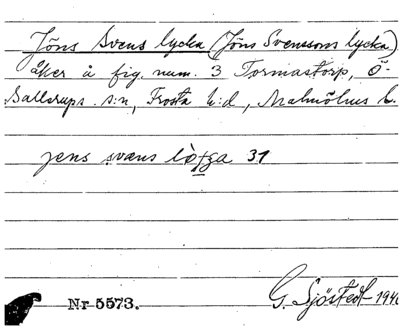 Jöns Svens lycka (Jöns Svenssons lycka)
åker å fig. num. 3 Tormastorp, Ö-
Sallerups s:n, Frosta h:d, Malmöhus l.
jens svæns 31
Nr 5573.
G. Sjöstedt 1940